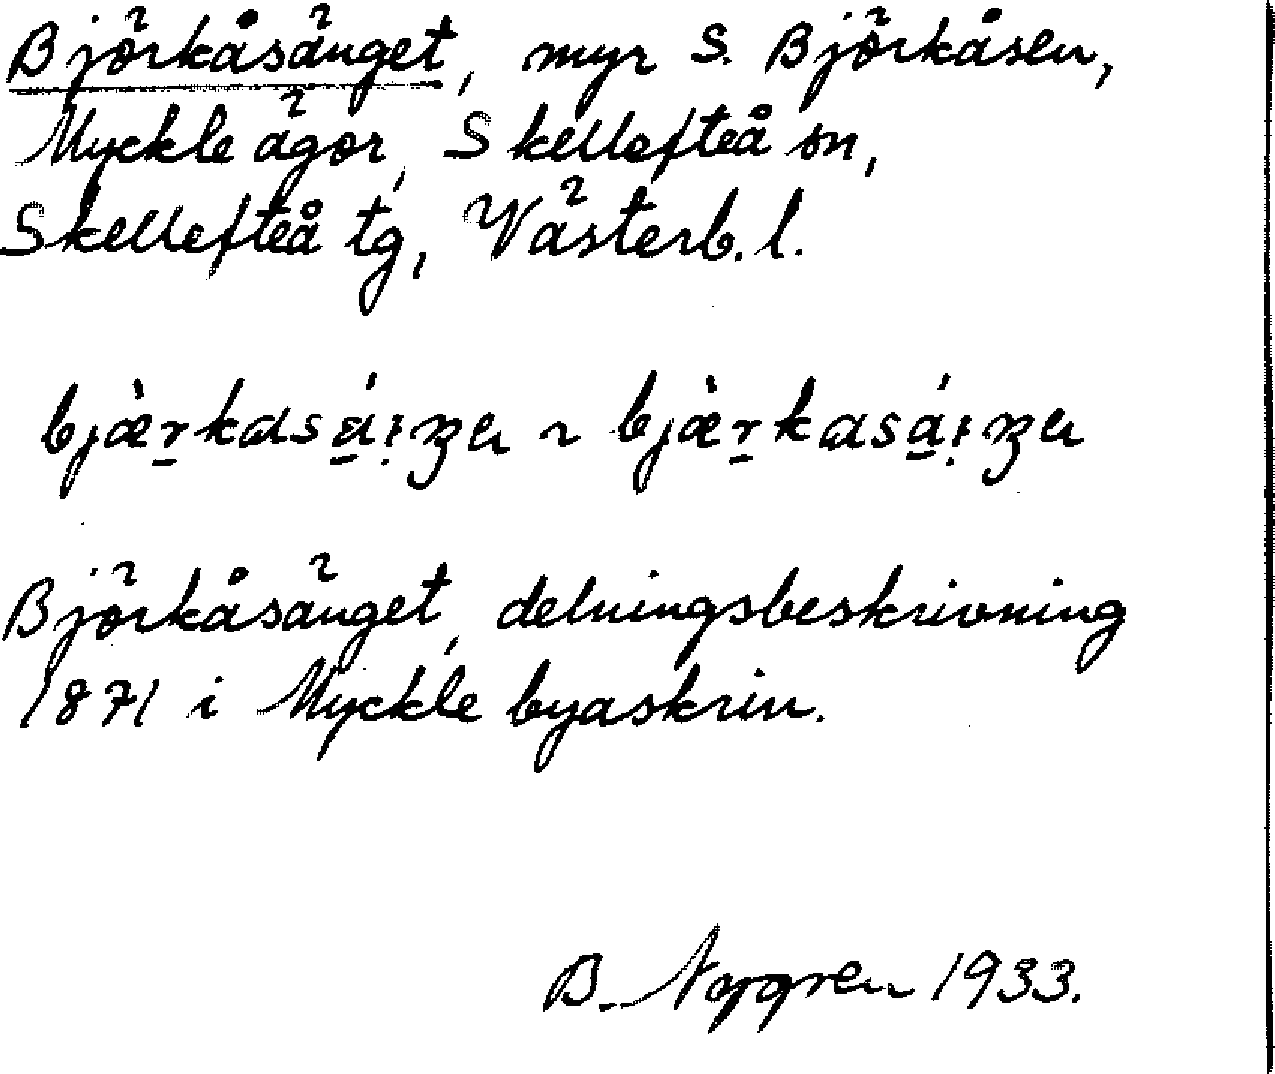 Björkåsänget, myr S. Björkåsen,
Myckle ägor, Skellefteå sn,
Skellefteå tg, Västerb. l.
Björkåsänget, delningsbeskrivning
1871 i Myckle byaskrin.
B. Norgren 1933.